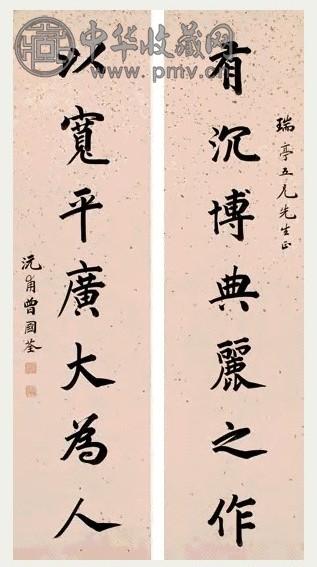 中华收藏网
www.pmv.cn
瑞亭五兄先生正
有沉博典麗之作
以寬平廣大為人
沅甫曾國荃